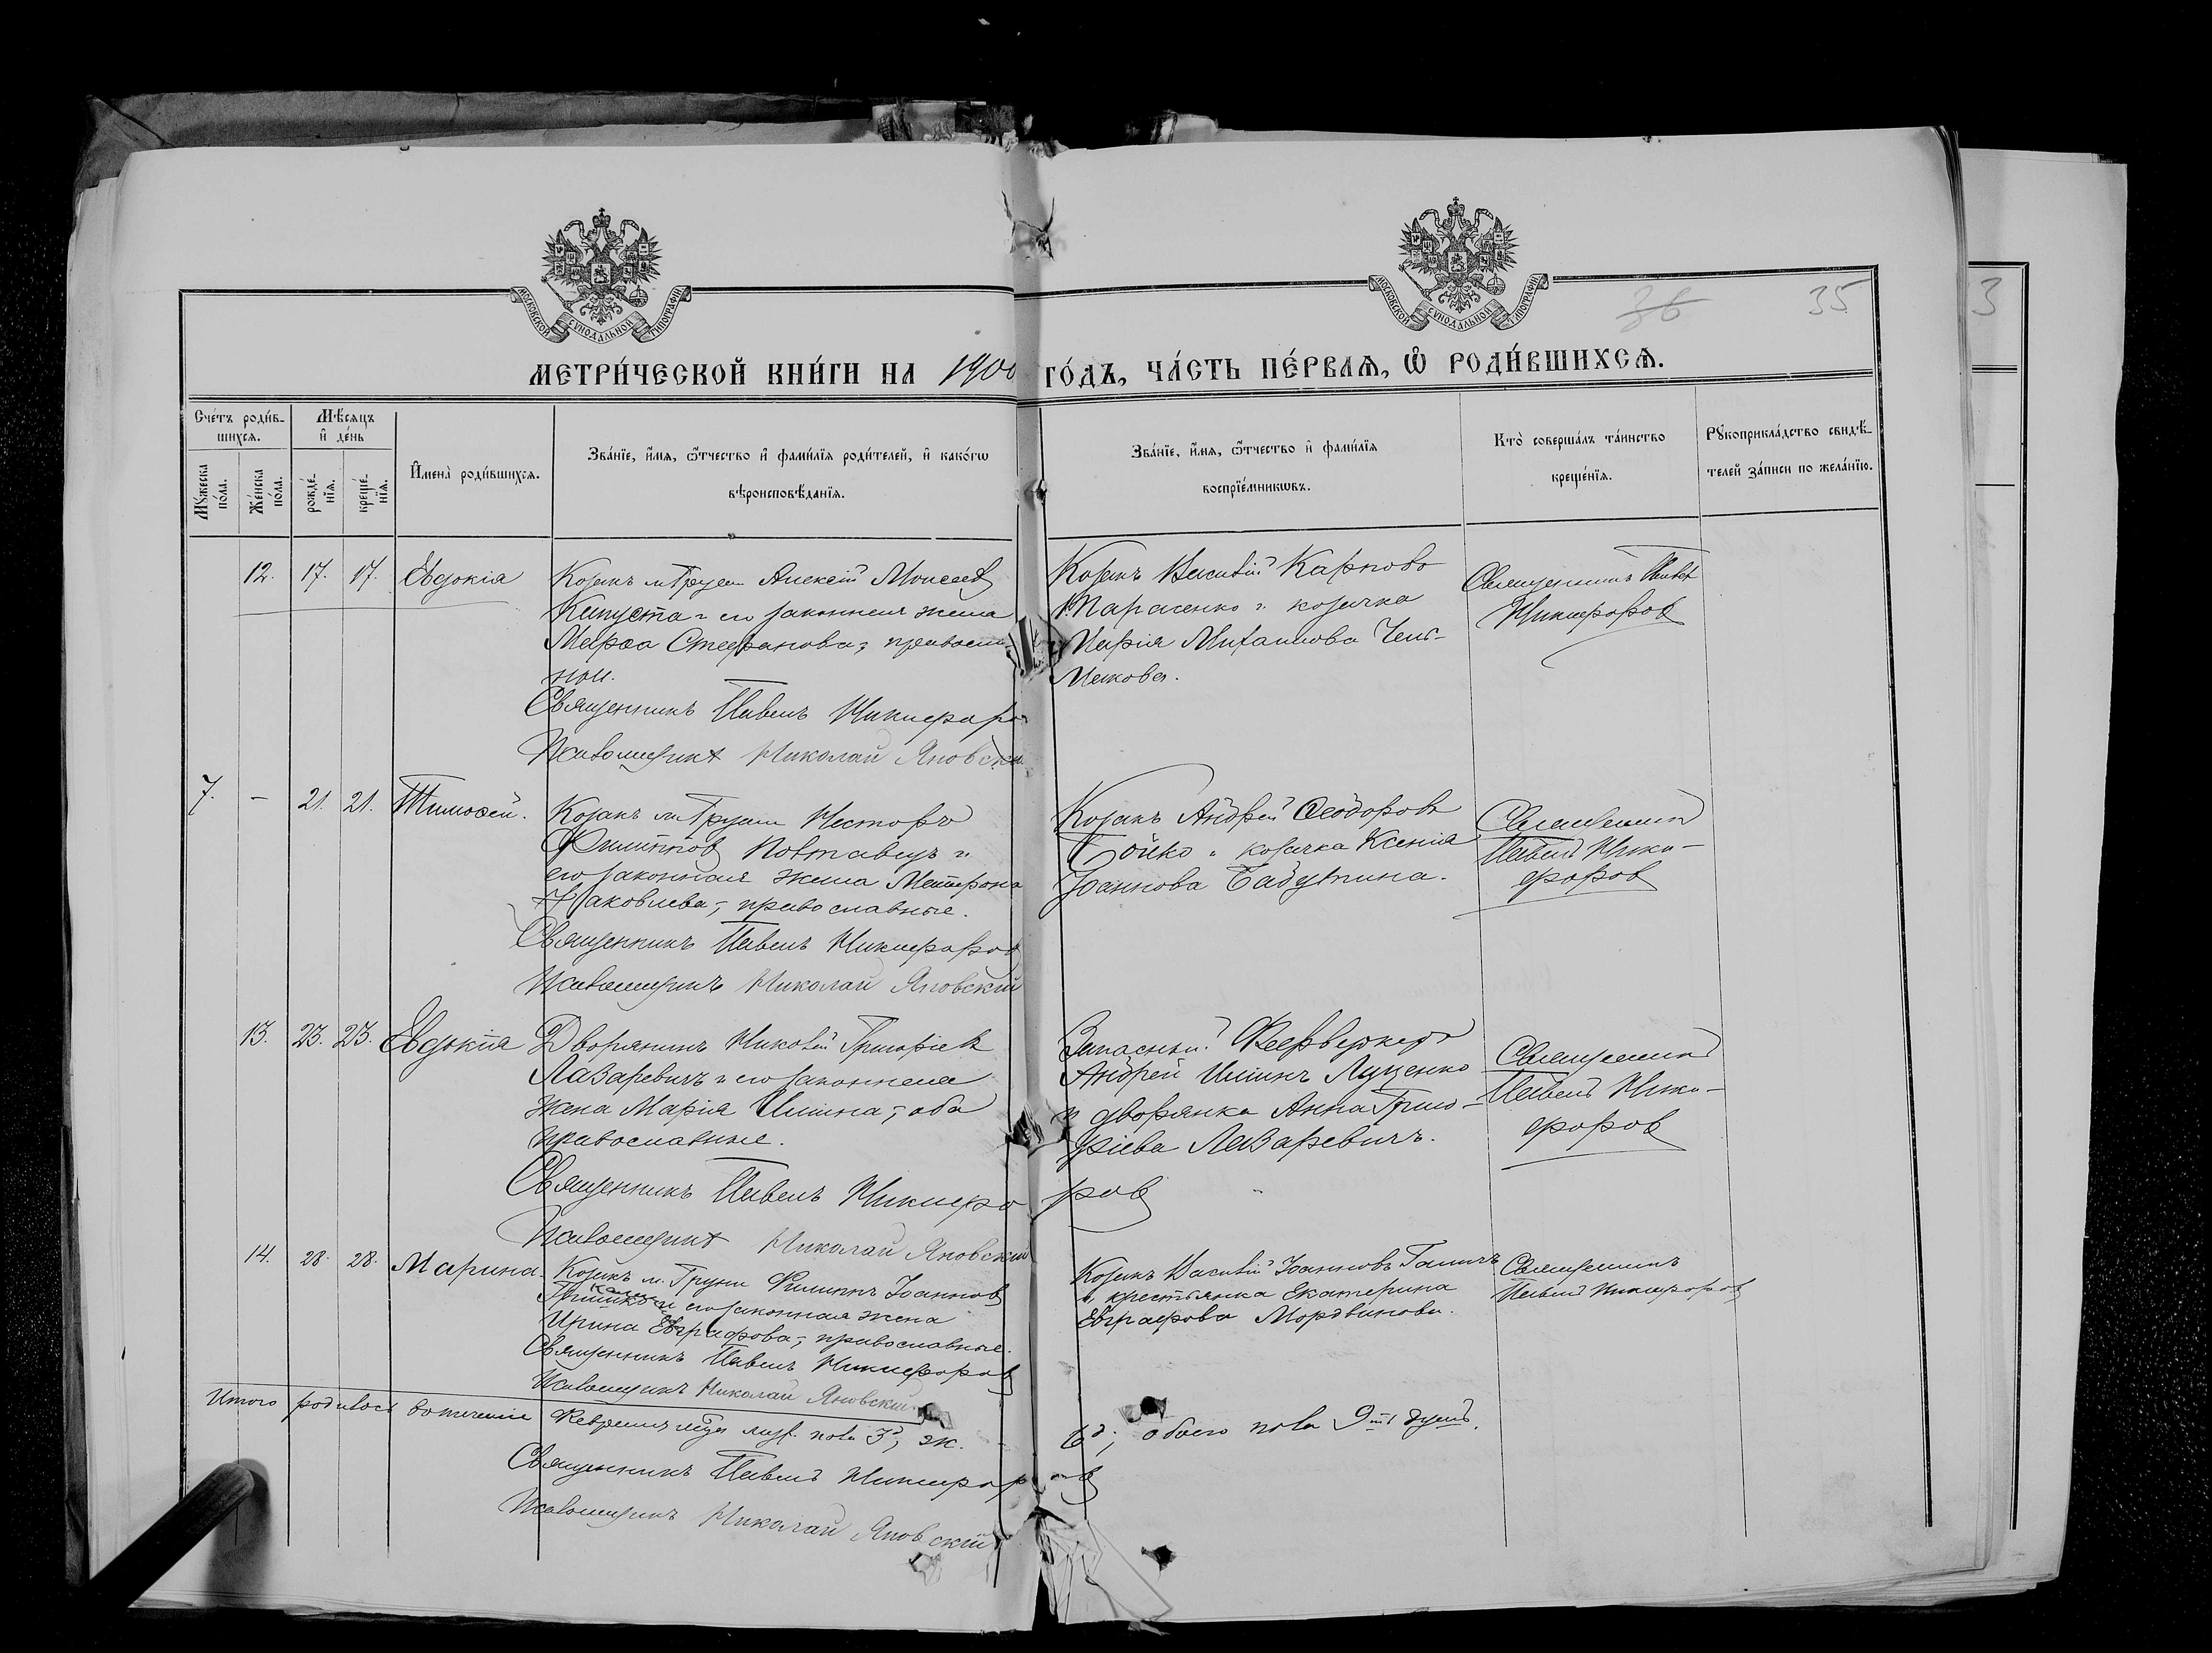 МОСКОВСКОЙ СѴНОДАЛЬНОЙ ТИПОГРАФІИ
МОСКОВСКОЙ СѴНОДАЛЬНОЙ ТИПОГРАФІИ
36 35 3
МЕТРИ́ЧЕСКОЙ КНИ́ГИ НА 1900 ГО́ДЪ, ЧА́СТЬ ПЕ́РВАѦ, Ѿ РОДИ́ВШИХСѦ.
Сче́тъ роди́в-
шихсѧ.
Мѣ́сѧцъ
и҆ де́нь
Мꙋ́жеска
по́ла.
Же́нска
по́ла.
рожде́-
нїѧ.
креще́-
нїѧ.
И҆мена̀ роди́вшихсѧ.
Зва́нїе, и҆́мѧ, ѻ҆́тчество и҆ фами́лїѧ роди́телей, и҆ како́гѡ
вѣроисповѣ́данїѧ.
Зва́нїе, и҆́мѧ, ѻ҆́тчество и҆ фами́лїѧ
воспрїе́мникѡвъ.
Кто̀ соверша́лъ та́инство
креще́нїѧ.
Рꙋкоприкла́дство свидѣ́-
телей за́писи по жела́нїю.
12. 17. 17. Евдокія
Козакъ м. Груни Алексій Моисеев
Капуста и его законная жена
Марѳа Стефанова, православ-
ные.
Священникъ Павелъ Никифоро
Псаломщикъ Николай Яновскій
Козакъ Василій Карпово
Тарасенко и козачка
Марія Михаилова
Священникъ Павел
Никифоров
7. - 21. 21. Тимоѳей.
Козакъ м. Груни Несторъ
Филиппов Полтавецъ и
его законная жена Матрона
Яковлева, православные.
Священникъ Павелъ Никифоров
Псаломщикъ Николай Яновскій
Козакъ Андрей Ѳеодоровъ
Бойко и козачка Ксенія
Іоаннова Бабушкина.
Священникъ
Павелъ Ники-
форов
13. 23. 23. Евдокія
Дворянинъ Николай Григоріев
Лазаревичъ и его законная
жена Марія Ильина, оба
православные.
Священникъ Павелъ Никифо ров
Псаломщикъ Николай Яновскій
Запасный Фейерверкеръ
Андрей Ильинъ Луценко
и дворянка Анна Григо-
ріева Лазаревичъ.
Священникъ
Павелъ Ники-
форов
14. 28. 28. Марина.
Козакъ м. Груни Филиппъ Іоаннов
и его законная жена
Ирина Евграфова, православные.
Священникъ Павелъ Никифоров
Псаломщикъ Николай Яновскій
Козакъ Василій Іоанновъ
и крестьянка Екатерина
Евграфова Мордвинова.
Священникъ
Павелъ Никифоров
Итого родилось въ теченіе Февраля м-ца муж. пола 3, ж. 6; обоего пола 9-ть душъ.
Священникъ Павелъ Никифоров
Псаломщикъ Николай Яновскій